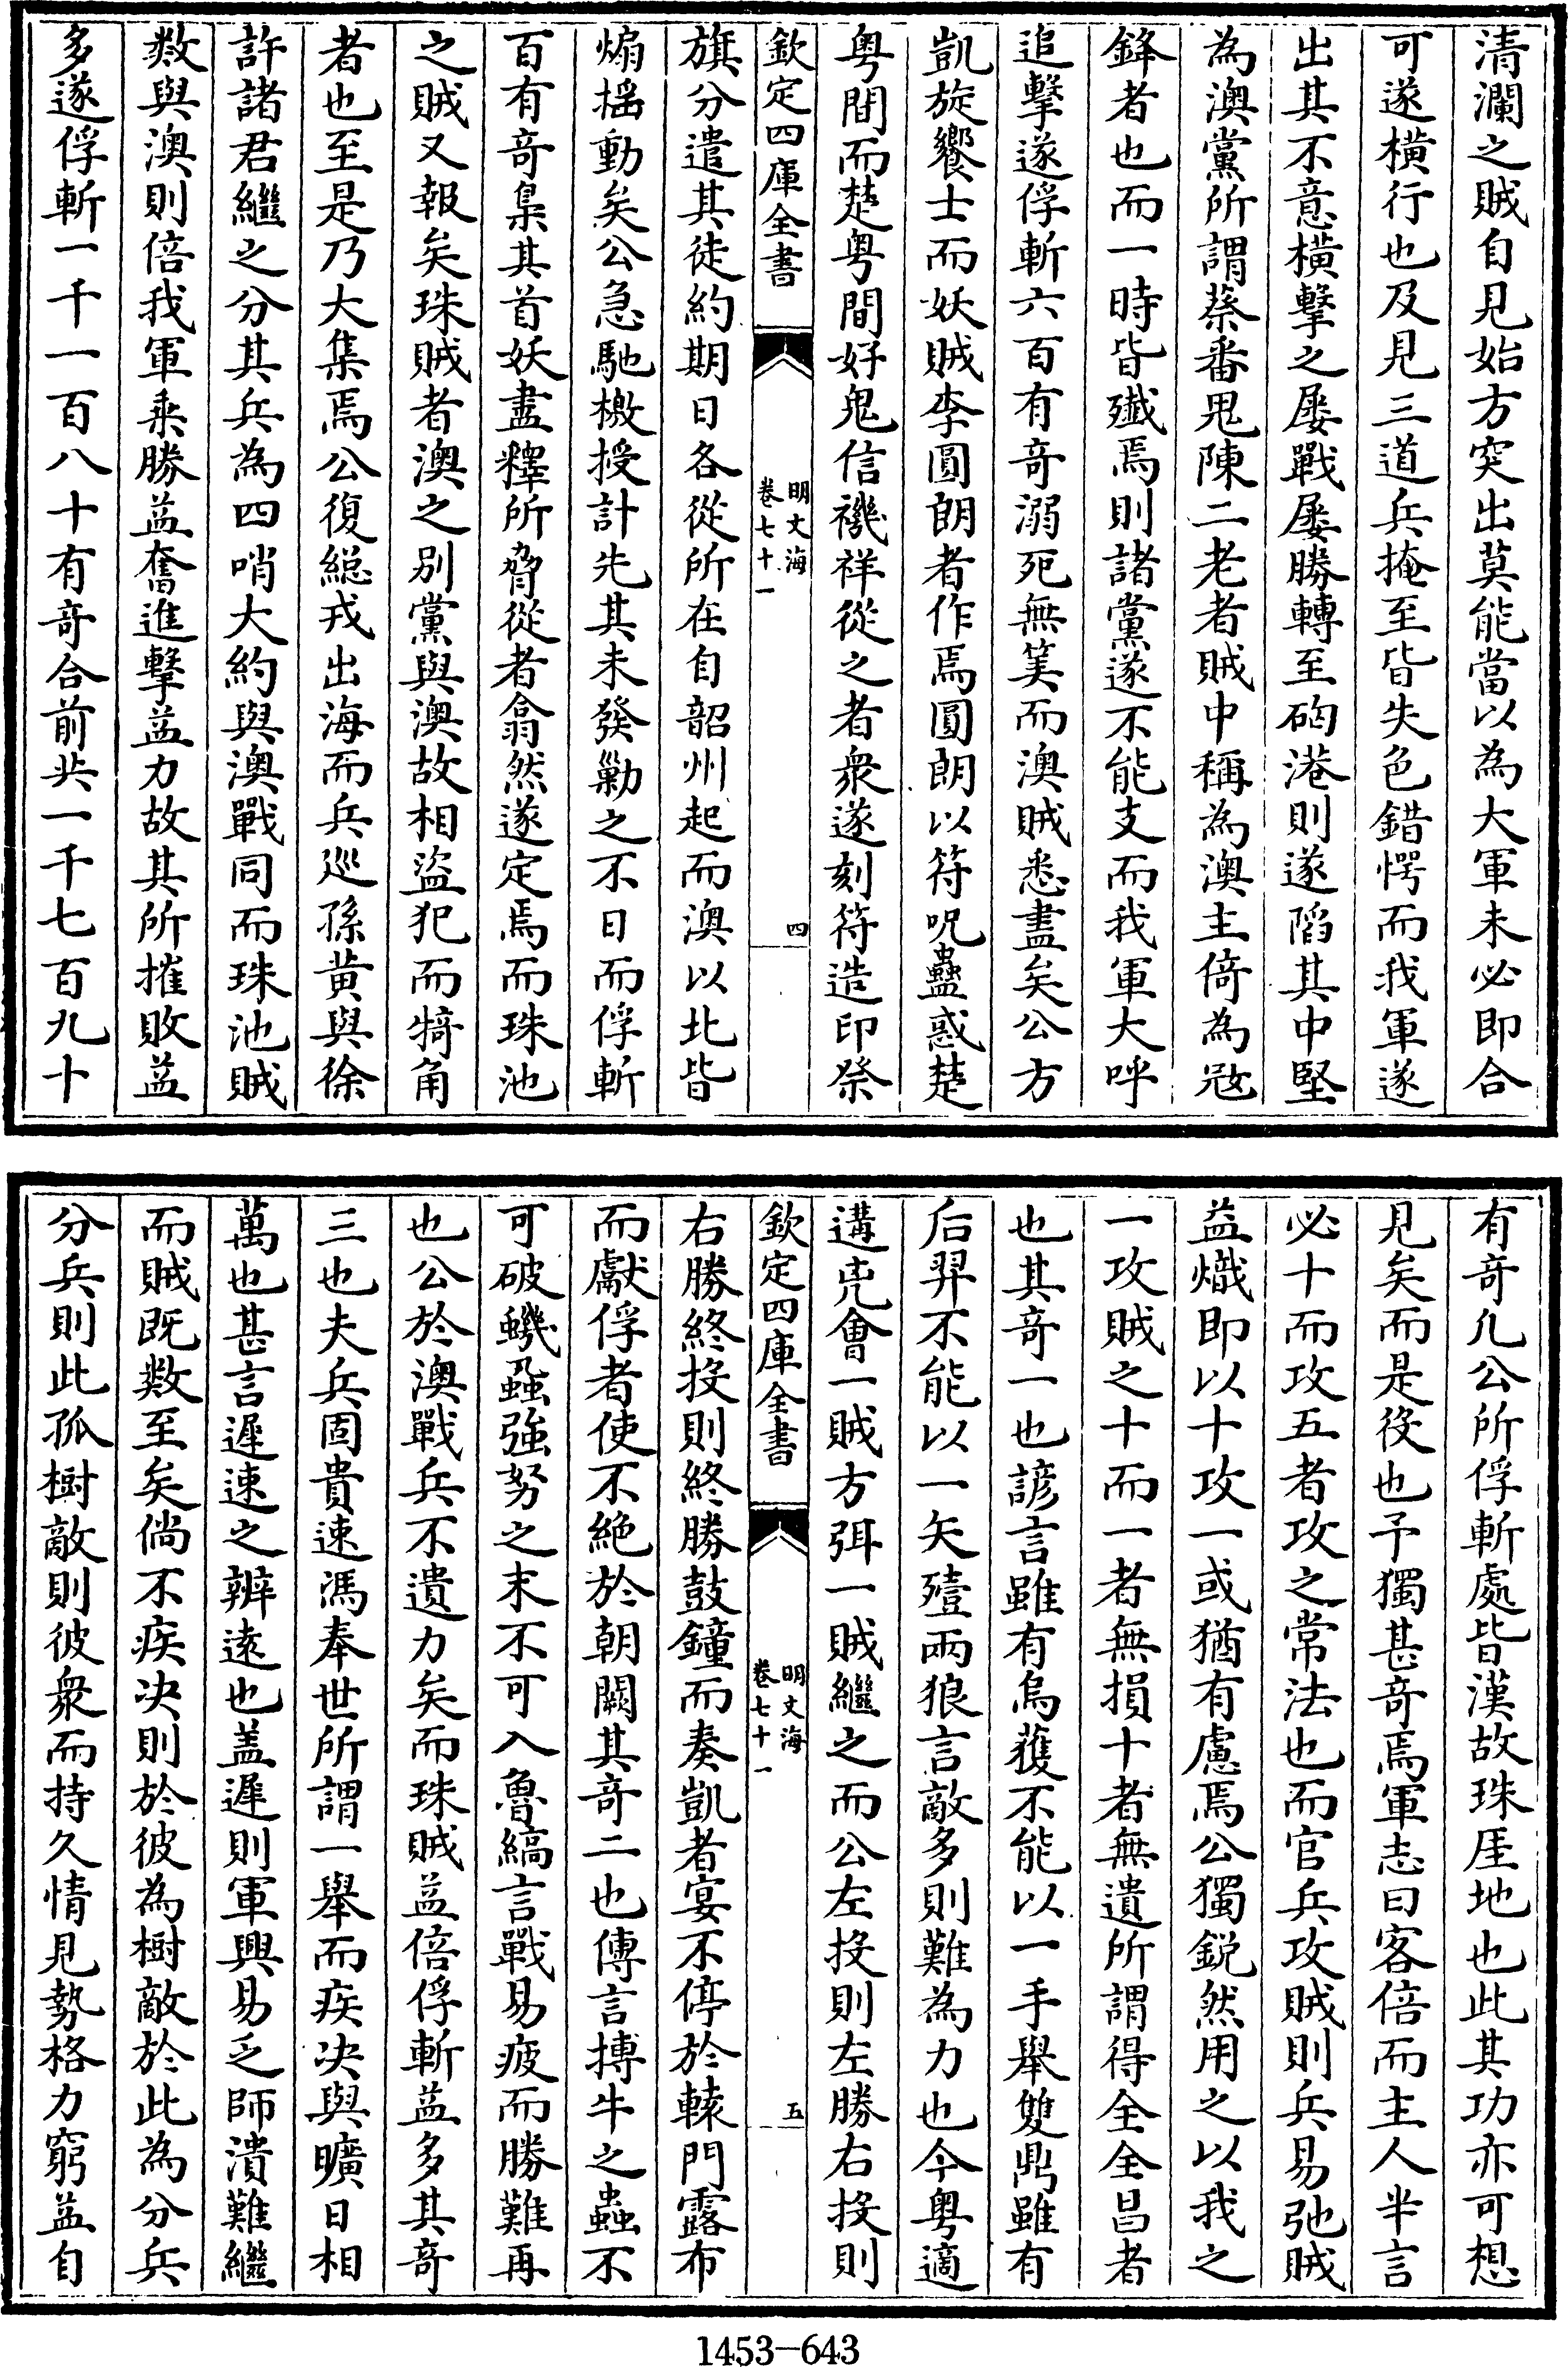 清瀾之賊自見始方突出莫能當以為大軍未必即合
可遂橫行也及見三道兵掩至皆失色錯愕而我軍遂
出其不意橫擊之屢戰屢勝轉至硇港則遂䧟其中堅
為澳黨所謂蔡番鬼陳二老者賊中稱為澳主倚為冦
鋒者也而一時皆殲焉則諸黨遂不能支而我軍大呼
追擊遂俘斬六百有竒溺死無筭而澳賊悉盡矣公方
凱旋饗士而妖賊李圓朗者作焉圓朗以符呪蠱惑楚
粤間而楚粤間好鬼信禨祥從之者衆遂刻符造印祭
欽定四庫全書
明文海
卷七十一
四
旗分遣其徒約期日各從所在自韶州起而澳以北皆
煽揺動矣公急馳檄授計先其未發勦之不日而俘斬
百有竒梟其首妖盡釋所脅從者翕然遂定焉而珠池
之賊又報矣珠賊者澳之别黨與澳故相盜犯而犄角
者也至是乃大集焉公復總戎出海而兵巡孫黄與徐
許諸君繼之分其兵為四哨大約與澳戰同而珠池賊
數與澳則倍我軍乘勝益奮進擊益力故其所摧敗益
多遂俘斬一千一百八十有竒合前共一千七百九十
有竒凡公所俘斬處皆漢故珠厓地也此其功亦可想
見矣而是役也予獨甚竒焉軍志曰客倍而主人半言
必十而攻五者攻之常法也而官兵攻賊則兵易弛賊
益熾即以十攻一或猶有慮焉公獨銳然用之以我之
一攻賊之十而一者無損十者無遺所謂得全全昌者
也其竒一也諺言雖有烏獲不能以一手舉雙鼎雖有
后羿不能以一矢殪兩狼言敵多則難為力也今粤適
遘兇會一賊方弭一賊繼之而公左投則左勝右投則
欽定四庫全書
明文海
卷七十一
五
右勝終投則終勝鼓鐘而奏凱者宴不停於轅門露布
而獻俘者使不絶於朝闕其竒二也傳言搏牛之蝱不
可破蟣蝨強弩之末不可入魯縞言戰易疲而勝難再
也公於澳戰兵不遺力矣而珠賊益倍俘斬益多其竒
三也夫兵固貴速馮奉世所謂一舉而疾决與曠日相
萬也甚言遲速之辨逺也盖遲則軍興易乏師潰難繼
而賊既數至矣倘不疾决則於彼為樹敵於此為分兵
分兵則此孤樹敵則彼衆而持久情見勢格力窮益自
1453—643